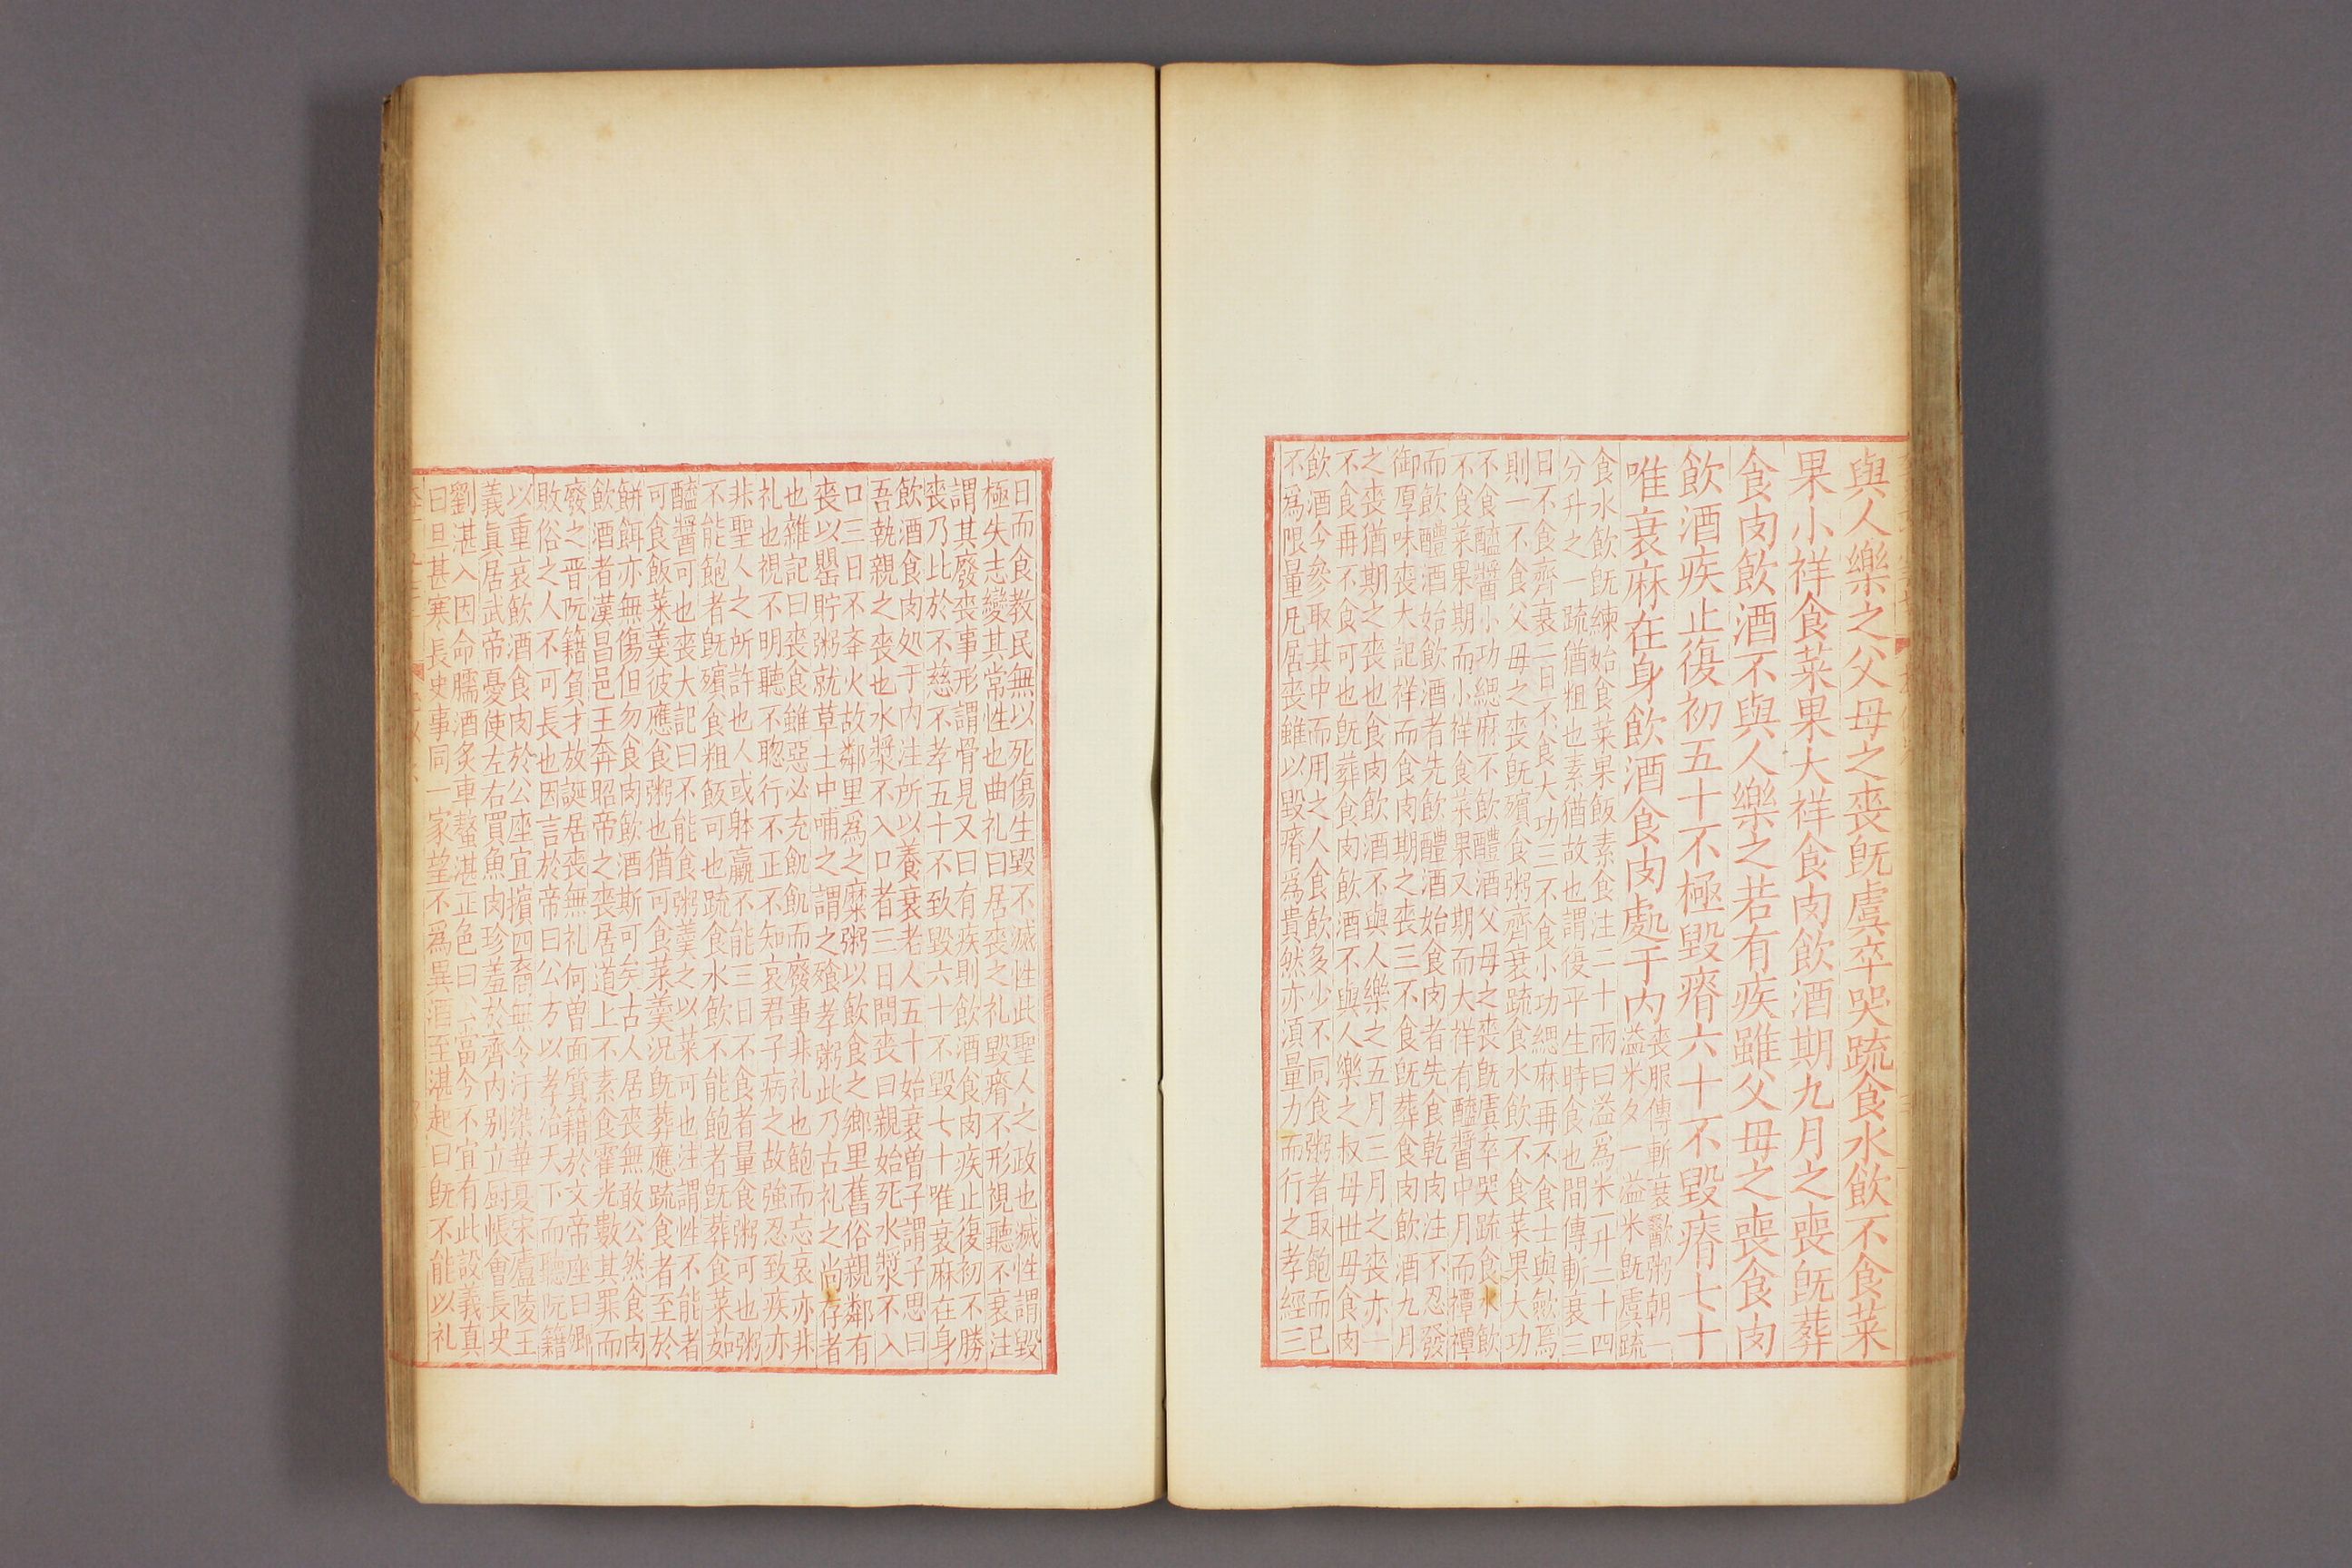 與人樂之父母之喪旣虞卒哭疏食水飲不食菜
果小祥食菜果大祥食肉飲酒期九月之喪旣葬
食肉飲酒不與人樂之若有疾雖父母之喪食肉
飲酒疾止復初五十不極毀瘠六十不毀瘠七十
唯衰麻在身飲酒食肉處于內
喪服傳斬衰歠粥朝一
溢米夕一溢米旣虞疏
食水飲旣練始食菜果飯素食注二十兩曰溢爲米一升二十四
分升之一疏猶粗也素猶故也謂復平生時食也間傳斬衰三
日不食齊衰二日不食大功三不食小功緦麻再不食士與斂焉
則一不食父母之喪旣殯食粥齊衰疏食水飲不食菜果大功
不食醯醬小功緦麻不飲醴酒父母之喪旣虞卒哭疏食水飲
不食菜果期而小祥食菜果又期而大祥有醯醬中月而禫禫
而飲醴酒始飲酒者先飲醴酒始食肉者先食乾肉注不忍發
御厚味喪大記祥而食肉期之喪三不食旣葬食肉飲酒九月
之喪猶期之喪也食肉飲酒不與人樂之五月三月之喪亦一
不食再不食可也旣葬食肉飲酒不與人樂之叔母世母食肉
飲酒今參取其中而用之人食飲多少不同食粥者取飽而已
不爲限量凡居喪雖以毀瘠爲貴然亦湏量力而行之孝經三
日而食教民無以死傷生毀不滅性此聖人之政也滅性謂毀
極失志變其常性也曲礼曰居喪之礼毀瘠不形視聽不衰注
謂其廢喪事形謂骨見又曰有疾則飲酒食肉疾止復初不勝
喪乃比於不慈不孝五十不致毀六十不毀七十唯衰麻在身
飲酒食肉処于內注所以養衰老人五十始衰曾子謂子思曰
吾執親之喪也水漿不入口者三日問喪曰親始死水漿不入
口三日不举火故鄰里爲之糜粥以飲食之鄉里舊俗親鄰有
喪以罌貯粥就草土中哺之謂之飱孝粥此乃古礼之尚存者
也雜記曰喪食雖惡必充飢飢而廢事非礼也飽而忘哀亦非
礼也視不明聽不聡行不正不知哀君子病之故強忍致疾亦
非聖人之所許也人或躰羸不能三日不食者量食粥可也粥
不能飽者旣殯食粗飯可也疏食水飲不能飽者旣葬食菜茹
醯醬可也喪大記曰不能食粥羮之以菜可也注謂性不能者
可食飯菜羮彼應食粥也猶可食菜羮况旣葬應疏食者至於
餅餌亦無傷但勿食肉飲酒斯可矣古人居喪無敢公然食肉
飲酒者漢昌邑王奔昭帝之喪居道上不素食霍光數其罪而
廢之晋阮籍負才放誕居喪無礼何曽面質籍於文帝座曰卿
敗俗之人不可長也因言於帝曰公方以孝治天下而聽阮籍
以重哀飲酒食肉於公座宜擯四裔無令汙染華夏宋廬陵王
義真居武帝憂使左右買魚肉珍羞於齊內别立厨帳會長史
劉湛入因命臑酒炙車螯湛正色曰公當今不宜有此設義真
曰旦甚寒長史事同一家望不爲異酒至湛起曰旣不能以礼